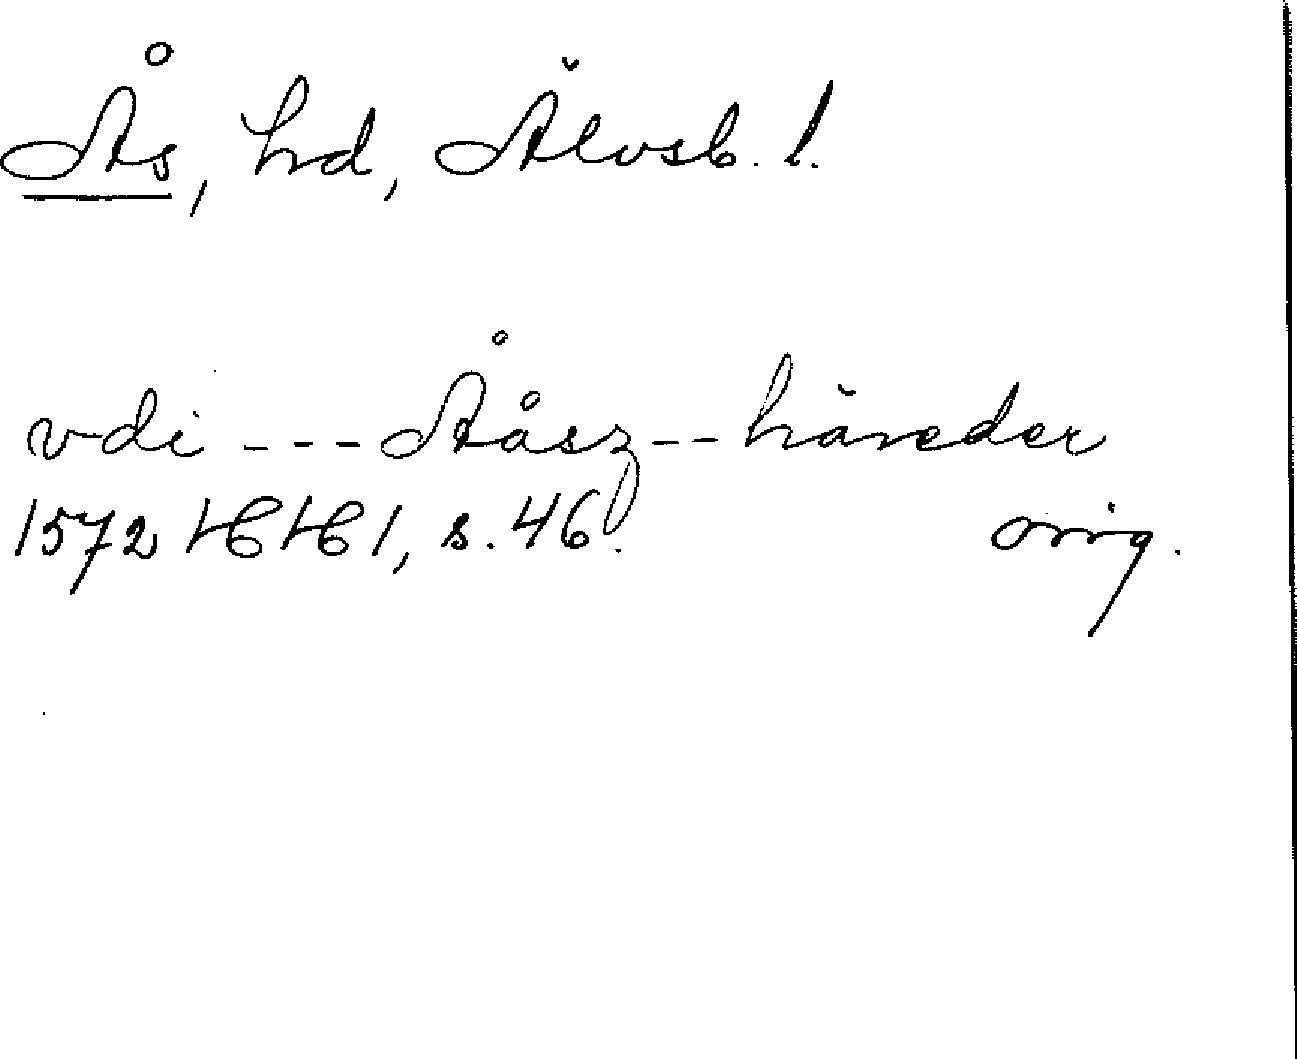 Ås, hd, Älvsb. l.
vdi --- Ååsz -- häreder
1572 HH 1, s. 46. orig.